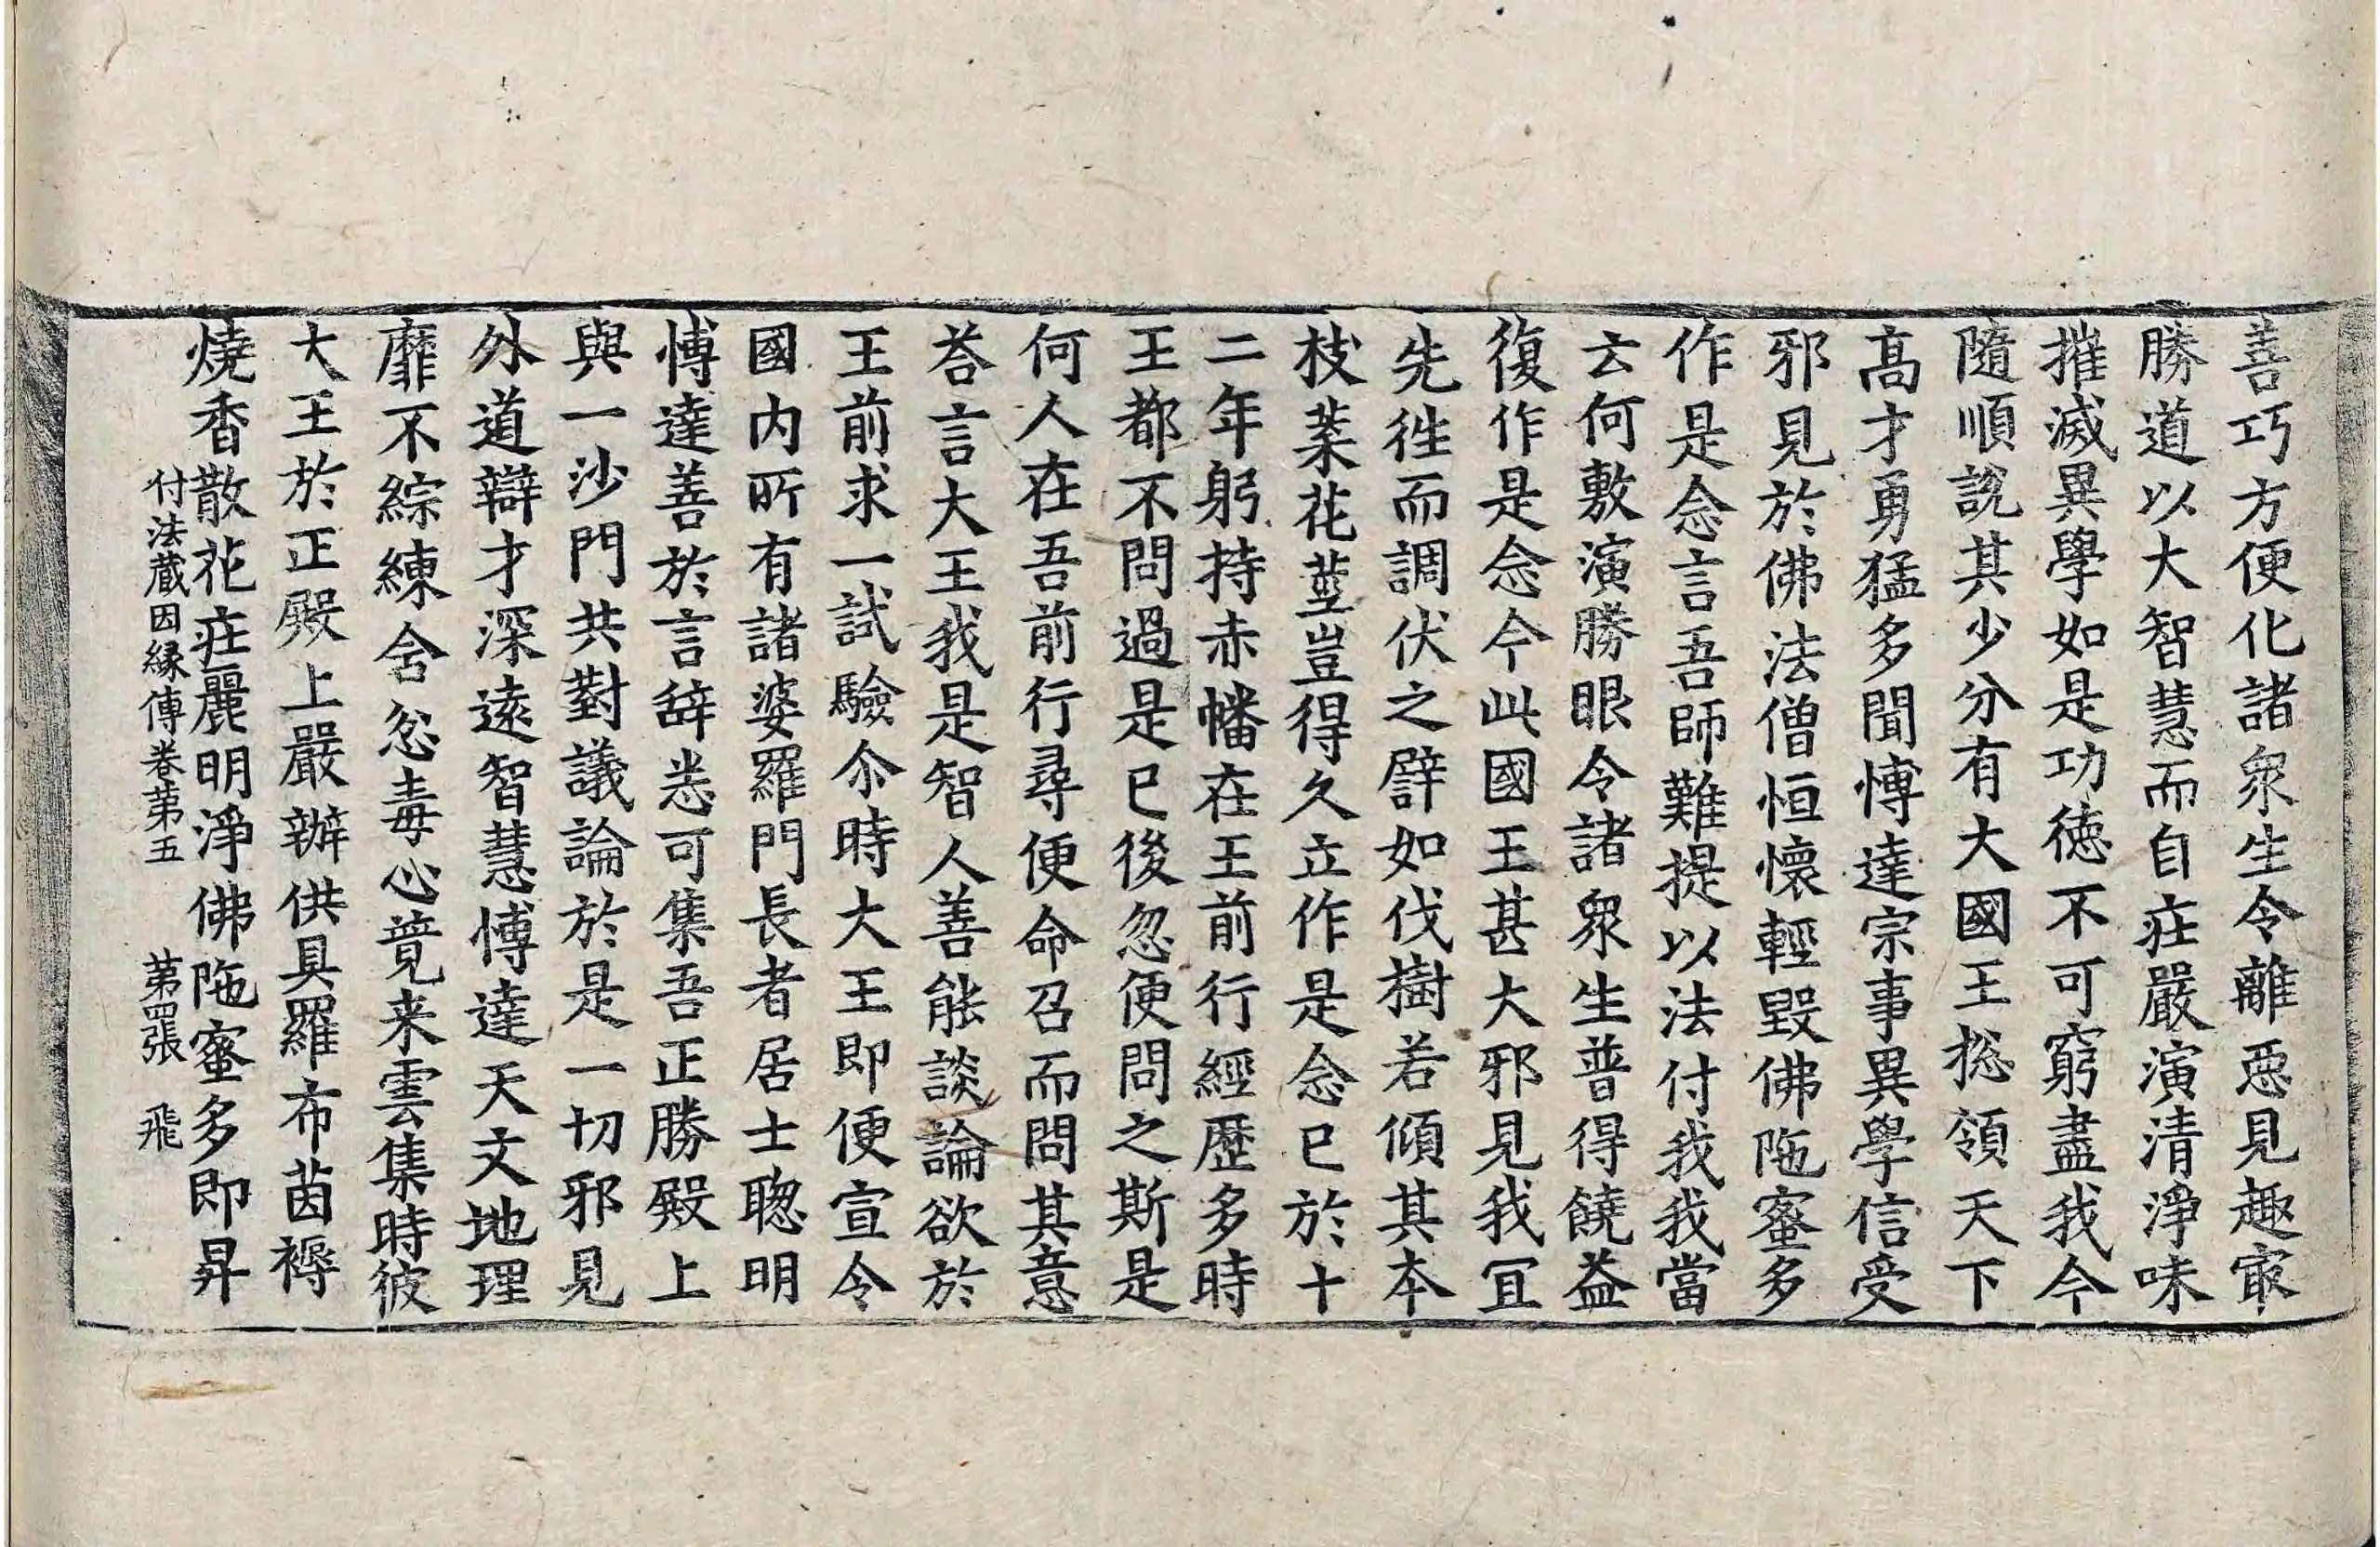 善巧方便化諸衆生令離惡見趣㝡
勝道以大智慧而自庄嚴演清淨味
摧滅異學如是功徳不可窮盡我今
隨順說其少分有大國王捴領天下
髙才勇猛多聞愽達宗事異學信受
邪見於佛法僧恒懷輕毀佛陁蜜多
作是念言吾師難提以法付我我當
云何敷演勝眼令諸衆生普得饒益
復作是念今此國王甚大邪見我冝
先徃而調伏之譬如伐樹若傾其本
枝葉花莖豈得久立作是念已於十
二年躬持赤幡在王前行經歷多時
王都不問過是已後忽便問之斯是
何人在吾前行尋便命召而問其意
荅言大王我是智人善能談論欲於
王前求一試驗尒時大王即便宣令
國內所有諸婆羅門長者居士聦明
愽達善於言辞悉可集吾正勝殿上
與一沙門共對議論於是一切邪見
外道辯才深遠智慧愽達天文地理
靡不綜練含忿毒心竟来雲集時彼
大王於正殿上嚴辦供具羅布茵褥
燒香散花庄麗明淨佛陁蜜多即昇
付法蔵因縁傳卷第五　第四張　飛